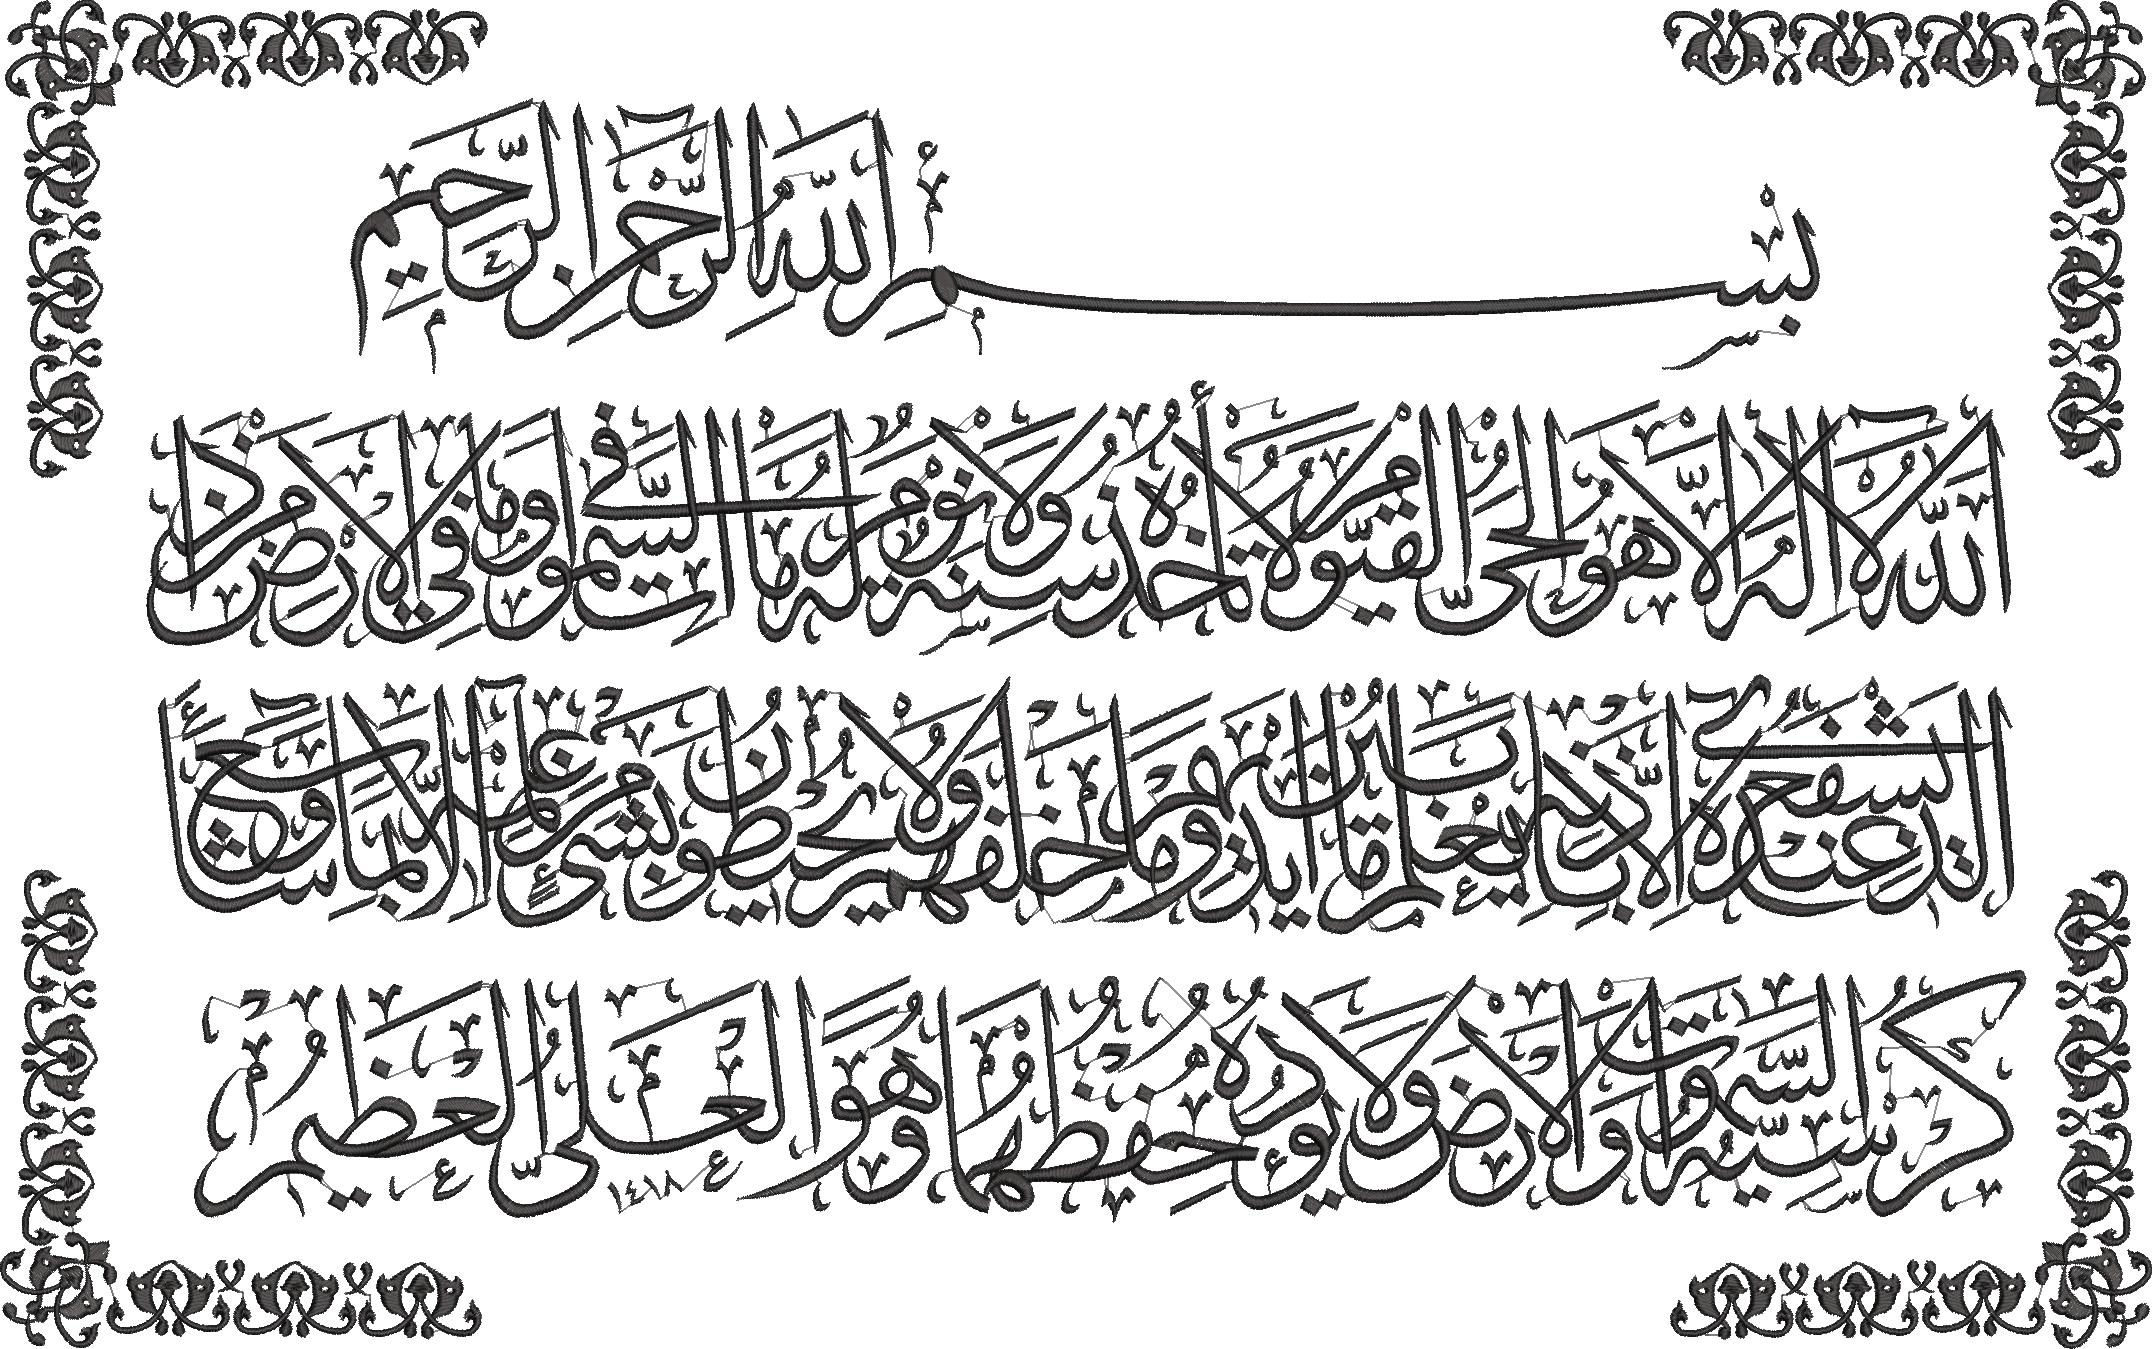 بِسْمِ اللَّهِ الرَّحْمٰنِ الرَّحِيمِ
اللَّهُ لَا إِلٰهَ إِلَّا هُوَ الْحَيُّ الْقَيُّومُ لَا تَأْخُذُهُ سِنَةٌ وَلَا نَوْمٌ لَهُ مَا فِي السَّمٰوَاتِ وَمَا فِي الْأَرْضِ مَنْ ذَا
الَّذِي يَشْفَعُ عِنْدَهُ إِلَّا بِإِذْنِهِ يَعْلَمُ مَا بَيْنَ أَيْدِيهِمْ وَمَا خَلْفَهُمْ وَلَا يُحِيطُونَ بِشَيْءٍ مِنْ عِلْمِهِ إِلَّا بِمَا شَاءَ وَسِعَ
كُرْسِيُّهُ السَّمٰوَاتِ وَالْأَرْضَ وَلَا يَئُودُهُ حِفْظُهُمَا وَهُوَ الْعَلِيُّ الْعَظِيمُ ١٤١٨